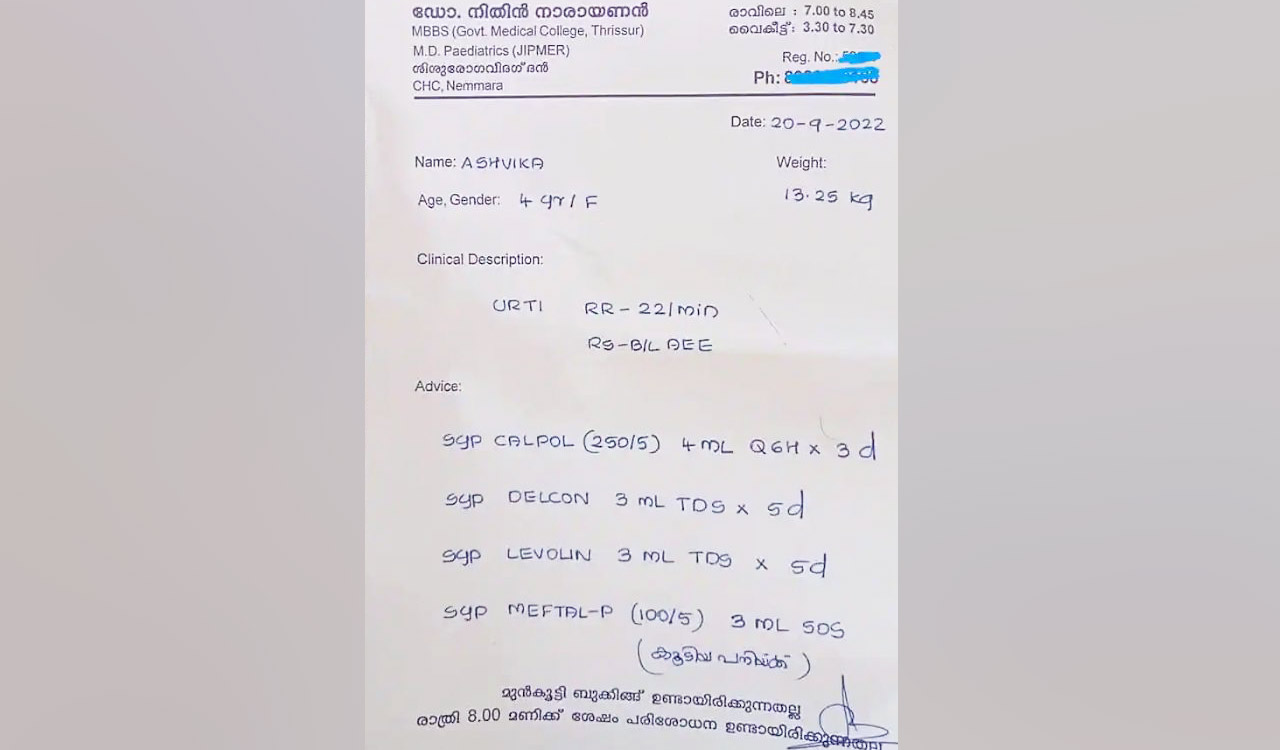 ഡോ. നിതിൻ നാരായണൻ
MBBS (Govt. Medical College, Thrissur)
M.D. Paediatrics (JIPMER)
ശിശുരോഗവിദഗ്ദൻ
CHC, Nemmara
രാവിലെ : 7.00 to 8.45
വൈകീട്ട്: 3.30 to 7.30
Reg. No.:
Ph:
Date: 20-9-2022
Name: ASHVIKA
Weight:
13.25 kg
Age, Gender: 4 yr / F
Clinical Description:
URTI RR - 22/min
RS - B/L AEE
Advice:
syp CALPOL (250/5) 4 mL Q6H x 3 d
syp DELCON 3 mL TDS x 5d
syp LEVOLIN 3 mL TDS x 5d
syp MEFTAL-P (100/5) 3 mL SOS
(കൂടിയ പനിയ്ക്ക്)
മുൻകൂട്ടി ബുക്കിങ്ങ് ഉണ്ടായിരിക്കുന്നതല്ല
രാത്രി 8.00 മണിക്ക് ശേഷം പരിശോധന ഉണ്ടായിരിക്കുന്നതല്ല